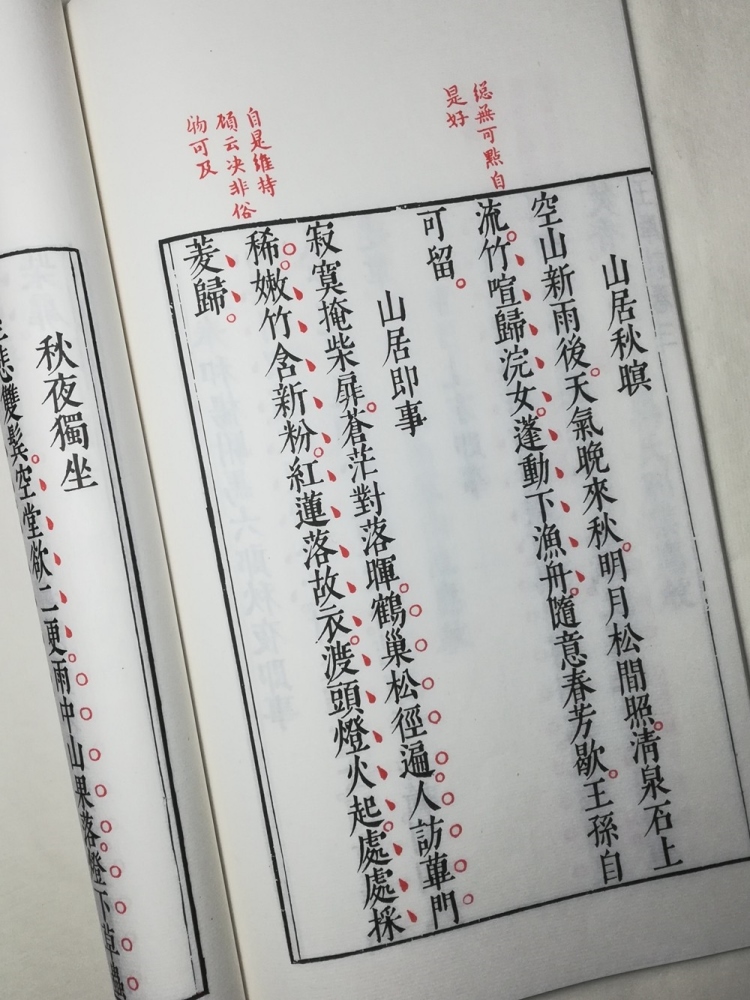 緫無可點自
是好
山居秋暝
空山新雨後。天氣晚來秋。明月松間照。清泉石上
流。竹喧歸浣女。蓮動下漁舟。隨意春芳歇。王孫自
可留。
自是維持
顧云决非俗
物可及
山居即事
寂寞掩柴扉。蒼茫對落暉。鶴巢松徑遍。人訪蓽門
稀。嫩竹含新粉。紅蓮落故衣。渡頭燈火起。處處採
菱歸。
秋夜獨坐
悲雙鬂。空堂欲二更。雨中山果落。燈下草蟲